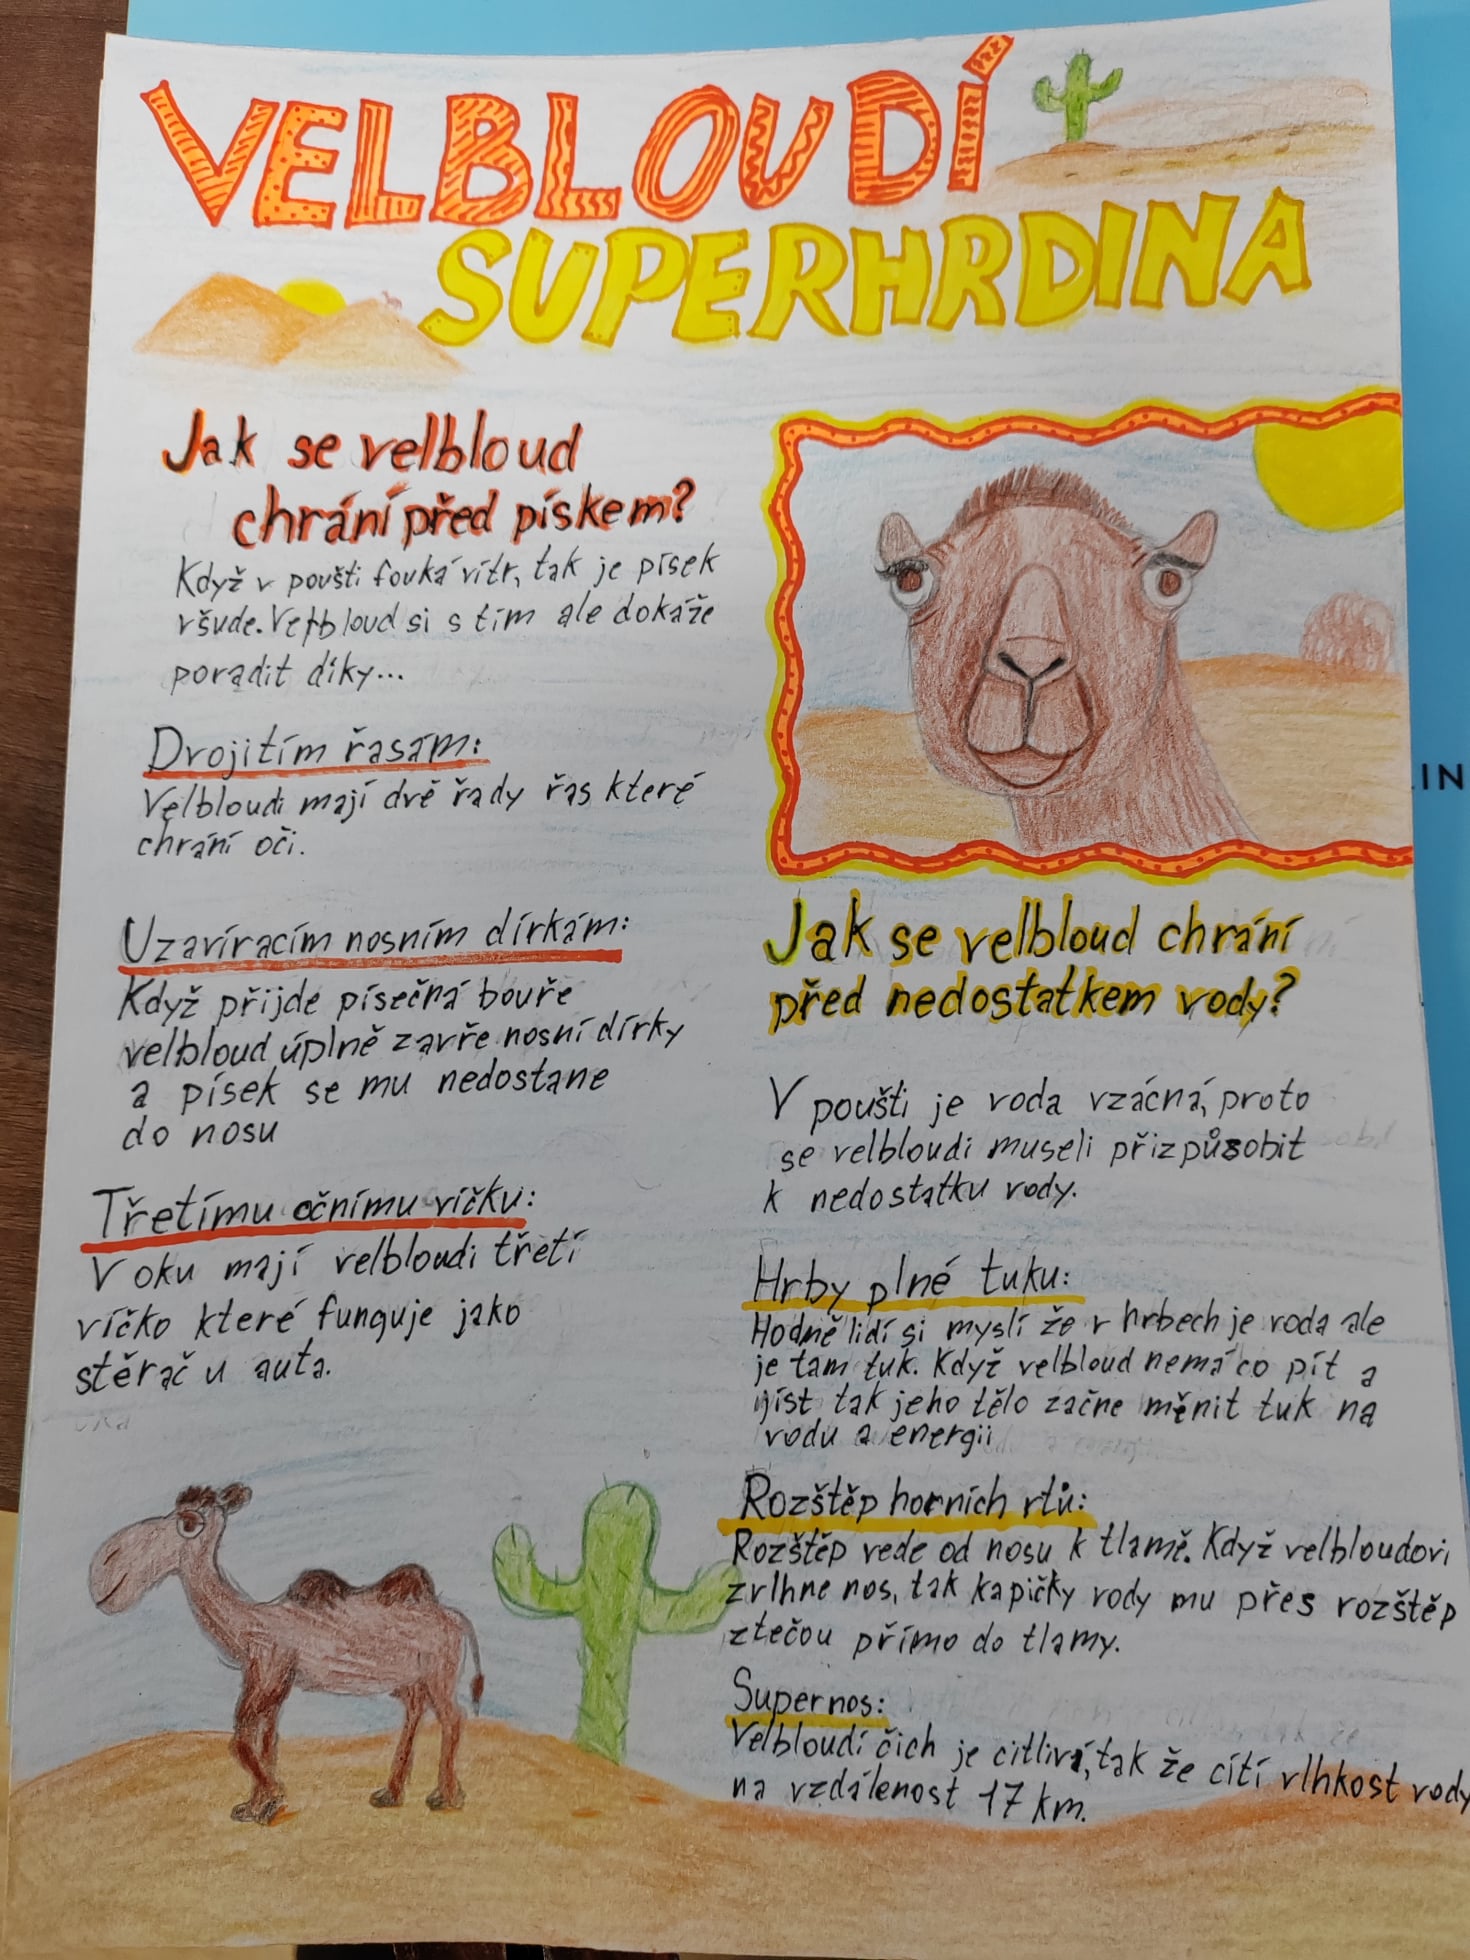 VELBLOUDÍ
SUPERHRDINA
Jak se velbloud
chrání před pískem?
Když v poušti fouká vítr, tak je písek
všude. Velbloud si s tím ale dokáže
poradit díky...
Drojitím řasám:
Velbloudi mají dvě řady řas které
chrání oči.
Uzavíracím nosním dírkám:
Když přijde písečná bouře
velbloud úplně zavře nosní dírky
a písek se mu nedostane
do nosu
Třetímu očnímu víčku:
V oku mají velbloudi třetí
víčko které funguje jako
stěrač u auta.
Jak se velbloud chrání
před nedostatkem vody?
V poušti je voda vzácná, proto
se velbloudi museli přizpůsobit
k nedostatku vody.
Hrby plné tuku:
Hodně lidí si myslí že v hrbech je voda ale
je tam tuk. Když velbloud nemá co pít a
jíst tak jeho tělo začne měnit tuk na
vodu a energii
Rozštěp horních rtů:
Rozštěp vede od nosu k tlamě. Když velbloudovi
zvlhne nos, tak kapičky vody mu přes rozštěp
ztečou přímo do tlamy.
Supernos:
Velbloudí čich je citliví, tak že cítí vlhkost vody
na vzdálenost 17 km.
IN